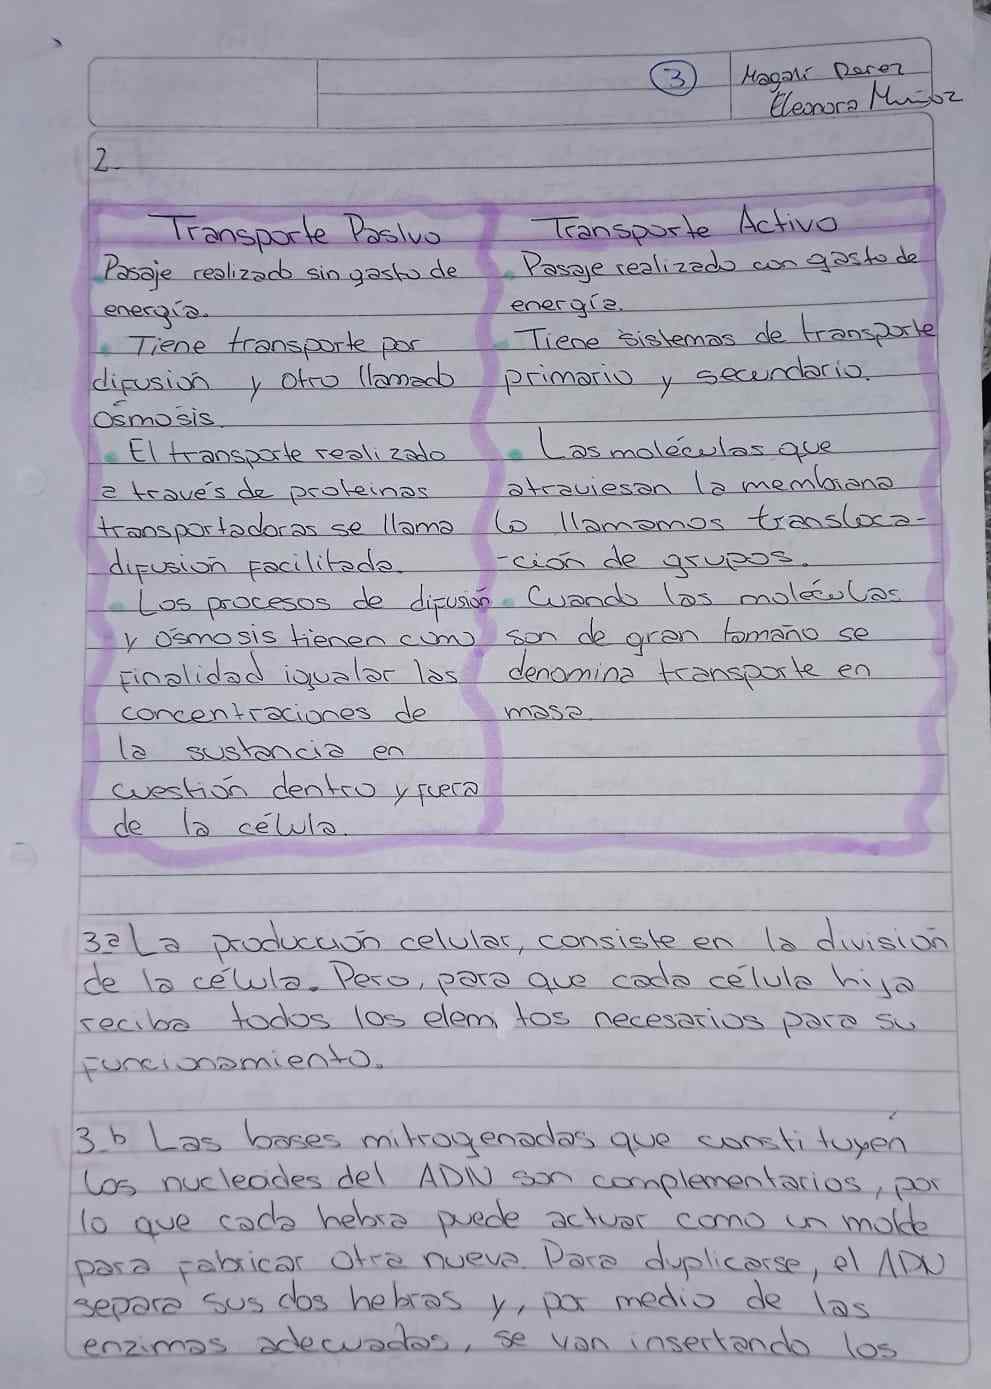 3
Magalí Perez
Eleonora Muñoz
2.
Transporte Pasivo
Pasaje realizado sin gasto de
energía.
Tiene transporte por
difusión y otro llamado
ósmosis.
El transporte realizado
a través de proteinas
transportadoras se llama
difusión facilitada.
Los procesos de difusión
y ósmosis tienen como
finalidad igualar las
concentraciones de
la sustancia en
cuestión dentro y fuera
de la célula.
Transporte Activo
Pasaje realizado con gasto de
energía.
Tiene sistemas de transporte
primario y secundario.
Las moléculas que
atraviesan la membrana
lo llamamos transloca-
-ción de grupos.
Cuando las moléculas
son de gran tamaño se
denomina transporte en
masa.
3a La producción celular, consiste en la división
de la célula. Pero, para que cada célula hija
reciba todos los elem tos necesarios para su
funcionamiento.
3.b Las bases mitrogenadas que constituyen
los nucleoides del ADN son complementarios, por
lo que cada hebra puede actuar como un molde
para fabricar otra nueva. Para duplicarse, el ADN
separa sus dos hebras y, por medio de las
enzimas adecuadas, se van insertando los